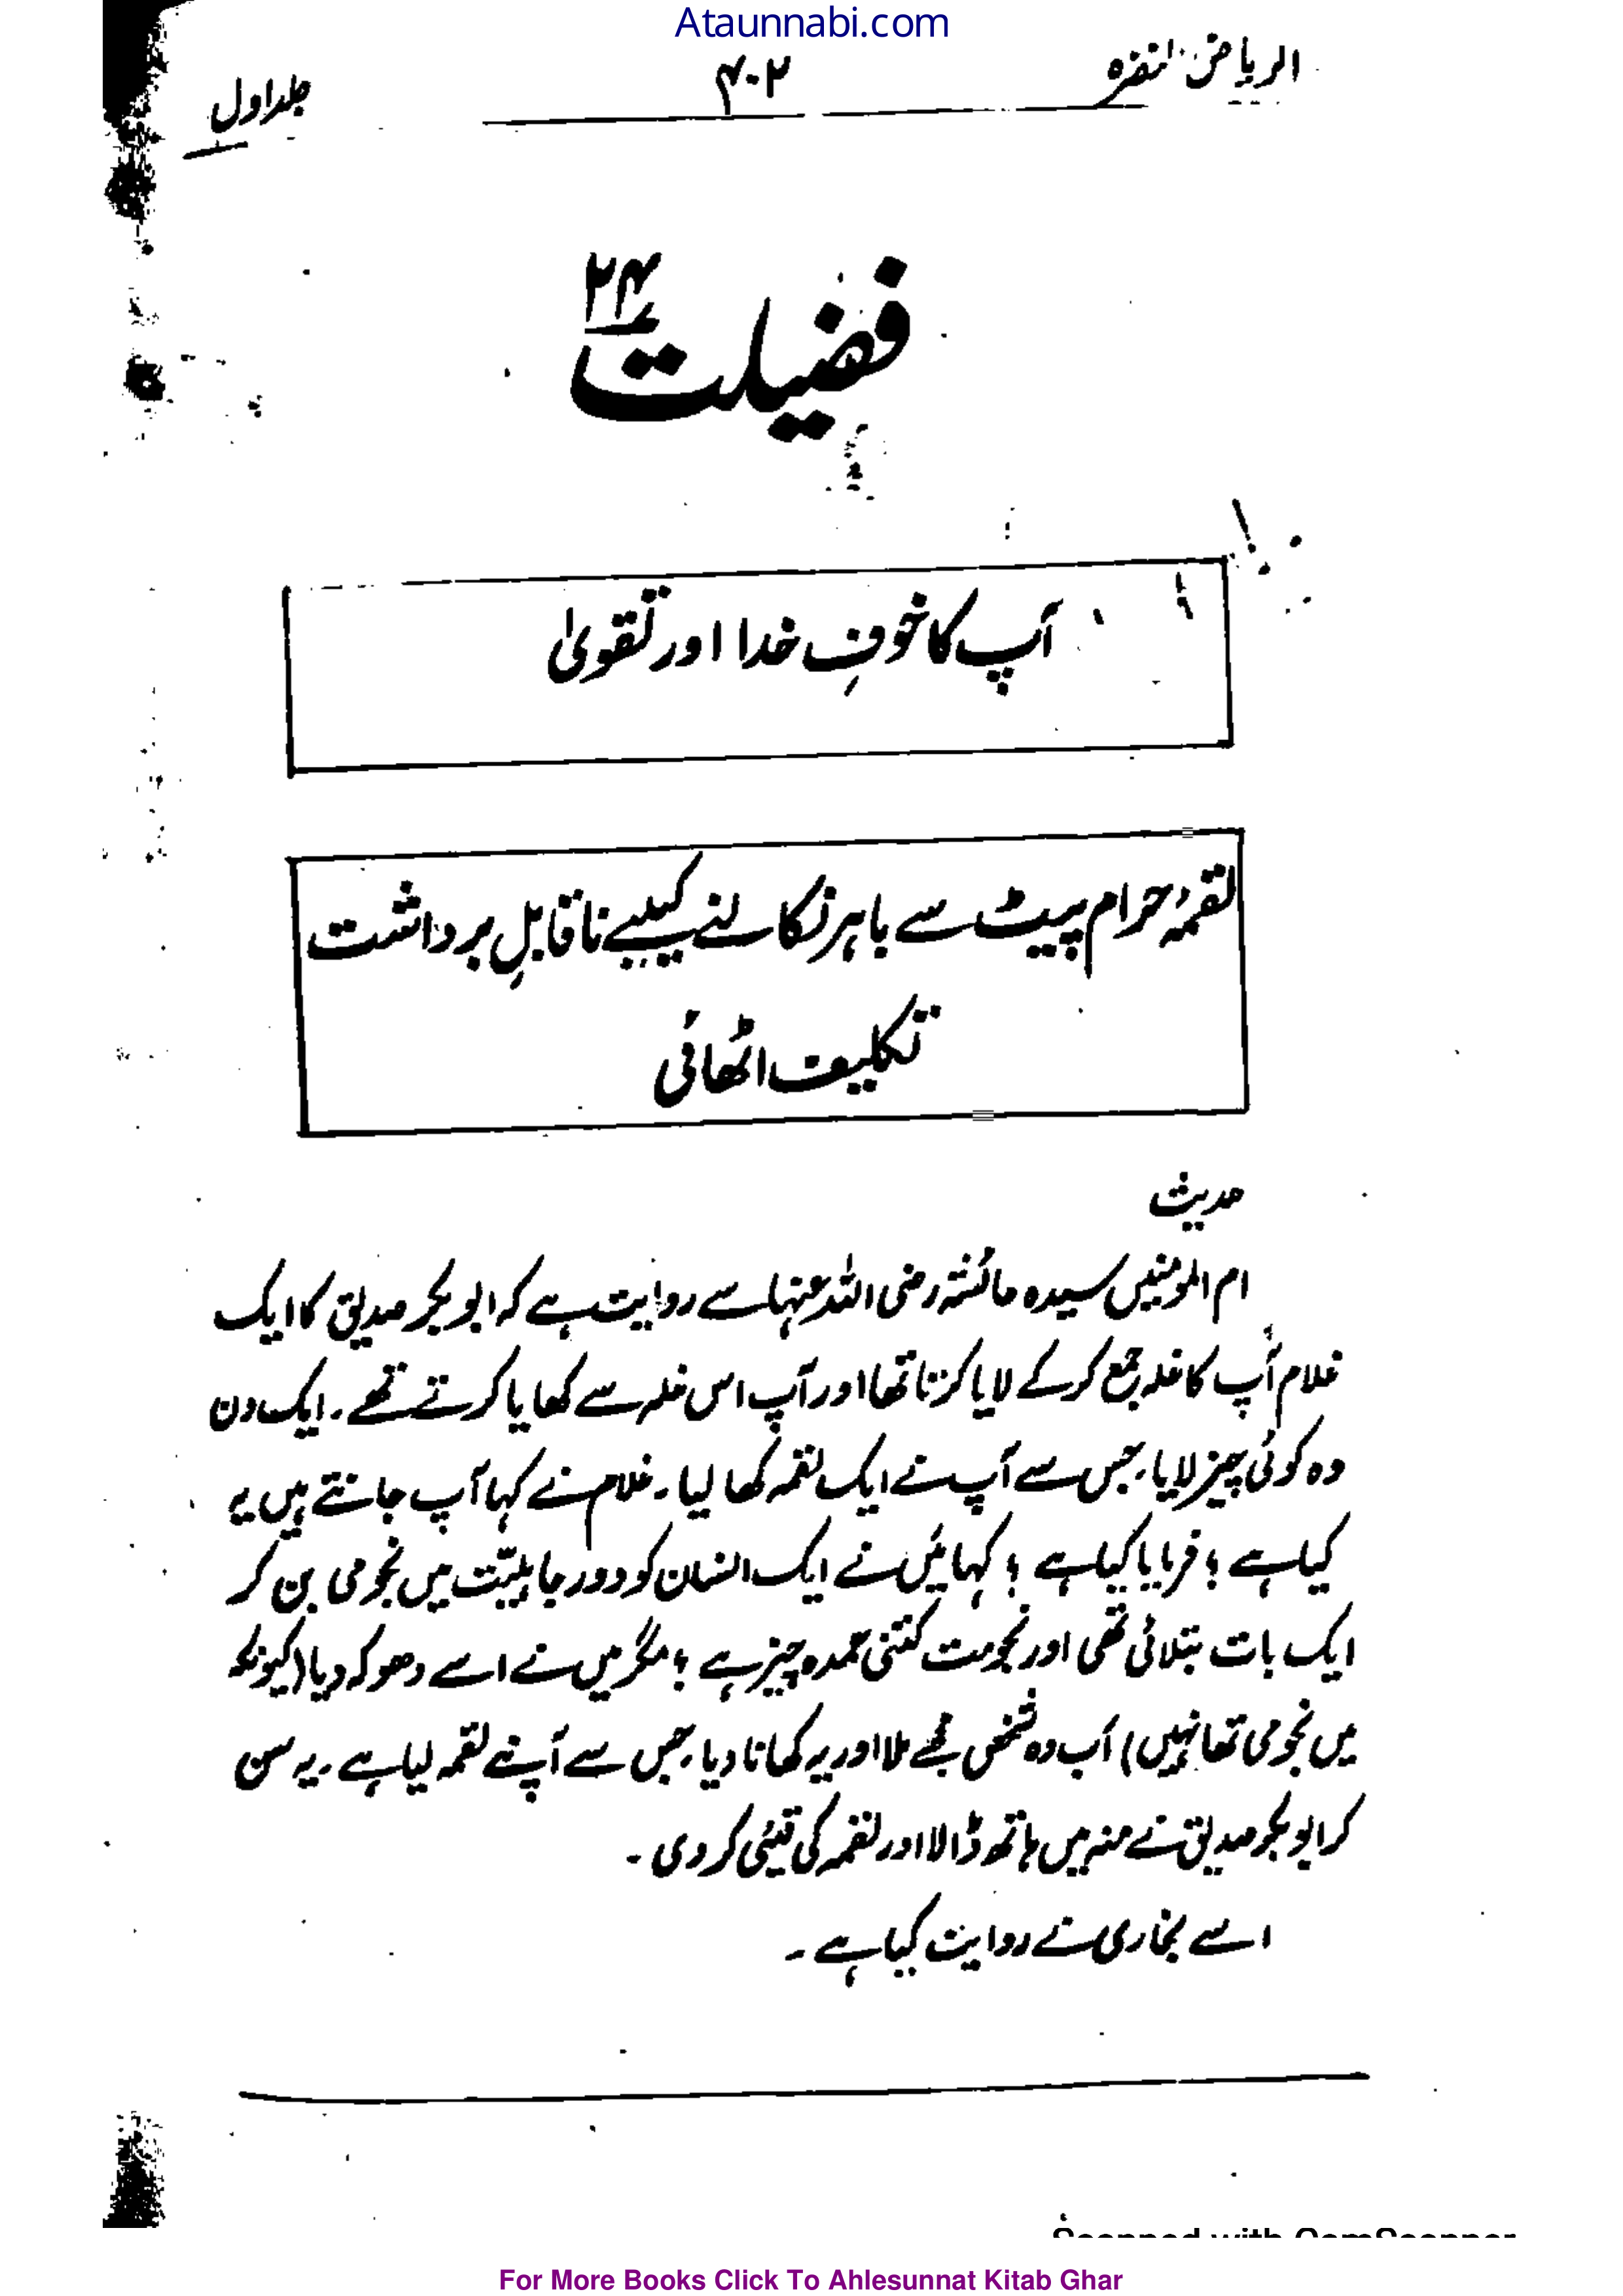 Ataunnabi.com
الریاض النضرہ
۴۰۲
جلد اول
فضیلت نمبر ۲۴
آپ کا خوفِ خدا اور تقویٰ
لقمۂ حرام پیٹ سے باہر نکالنے کیلیے ناقابلِ برداشت
تکلیف اٹھائی
حدیث
ام المومنین سیدہ عائشہ رضی اللہ عنہا سے روایت ہے کہ ابوبکر صدیق کا ایک
غلام آپ کا غلہ جمع کر کے لایا کرتا تھا اور آپ اس غلہ سے کھایا کرتے تھے۔ ایک دن
وہ کوئی چیز لایا، جس سے آپ نے ایک لقمہ کھا لیا۔ غلام نے کہا آپ جانتے ہیں یہ
کیا ہے ؟ فرمایا کیا ہے ؟ کہا میں نے ایک انسان کو دور جاہلیّت میں نجومی بن کر
ایک بات بتلائی تھی اور نجومت کتنی عمدہ چیز ہے ؟ مگر میں نے اسے دھوکہ دیا (کیونکہ
میں نجومی تھا نہیں) اب وہ شخص مجھے ملا اور یہ کھانا دیا، جس سے آپنے لقمہ لیا ہے۔ یہ سن
کر ابوبکر صدیق نے منہ میں ہاتھ ڈالا اور لقمہ کی قیئی کر دی۔
اسے بخاری نے روایت کیا ہے۔
Scanned with CamScanner
For More Books Click To Ahlesunnat Kitab Ghar